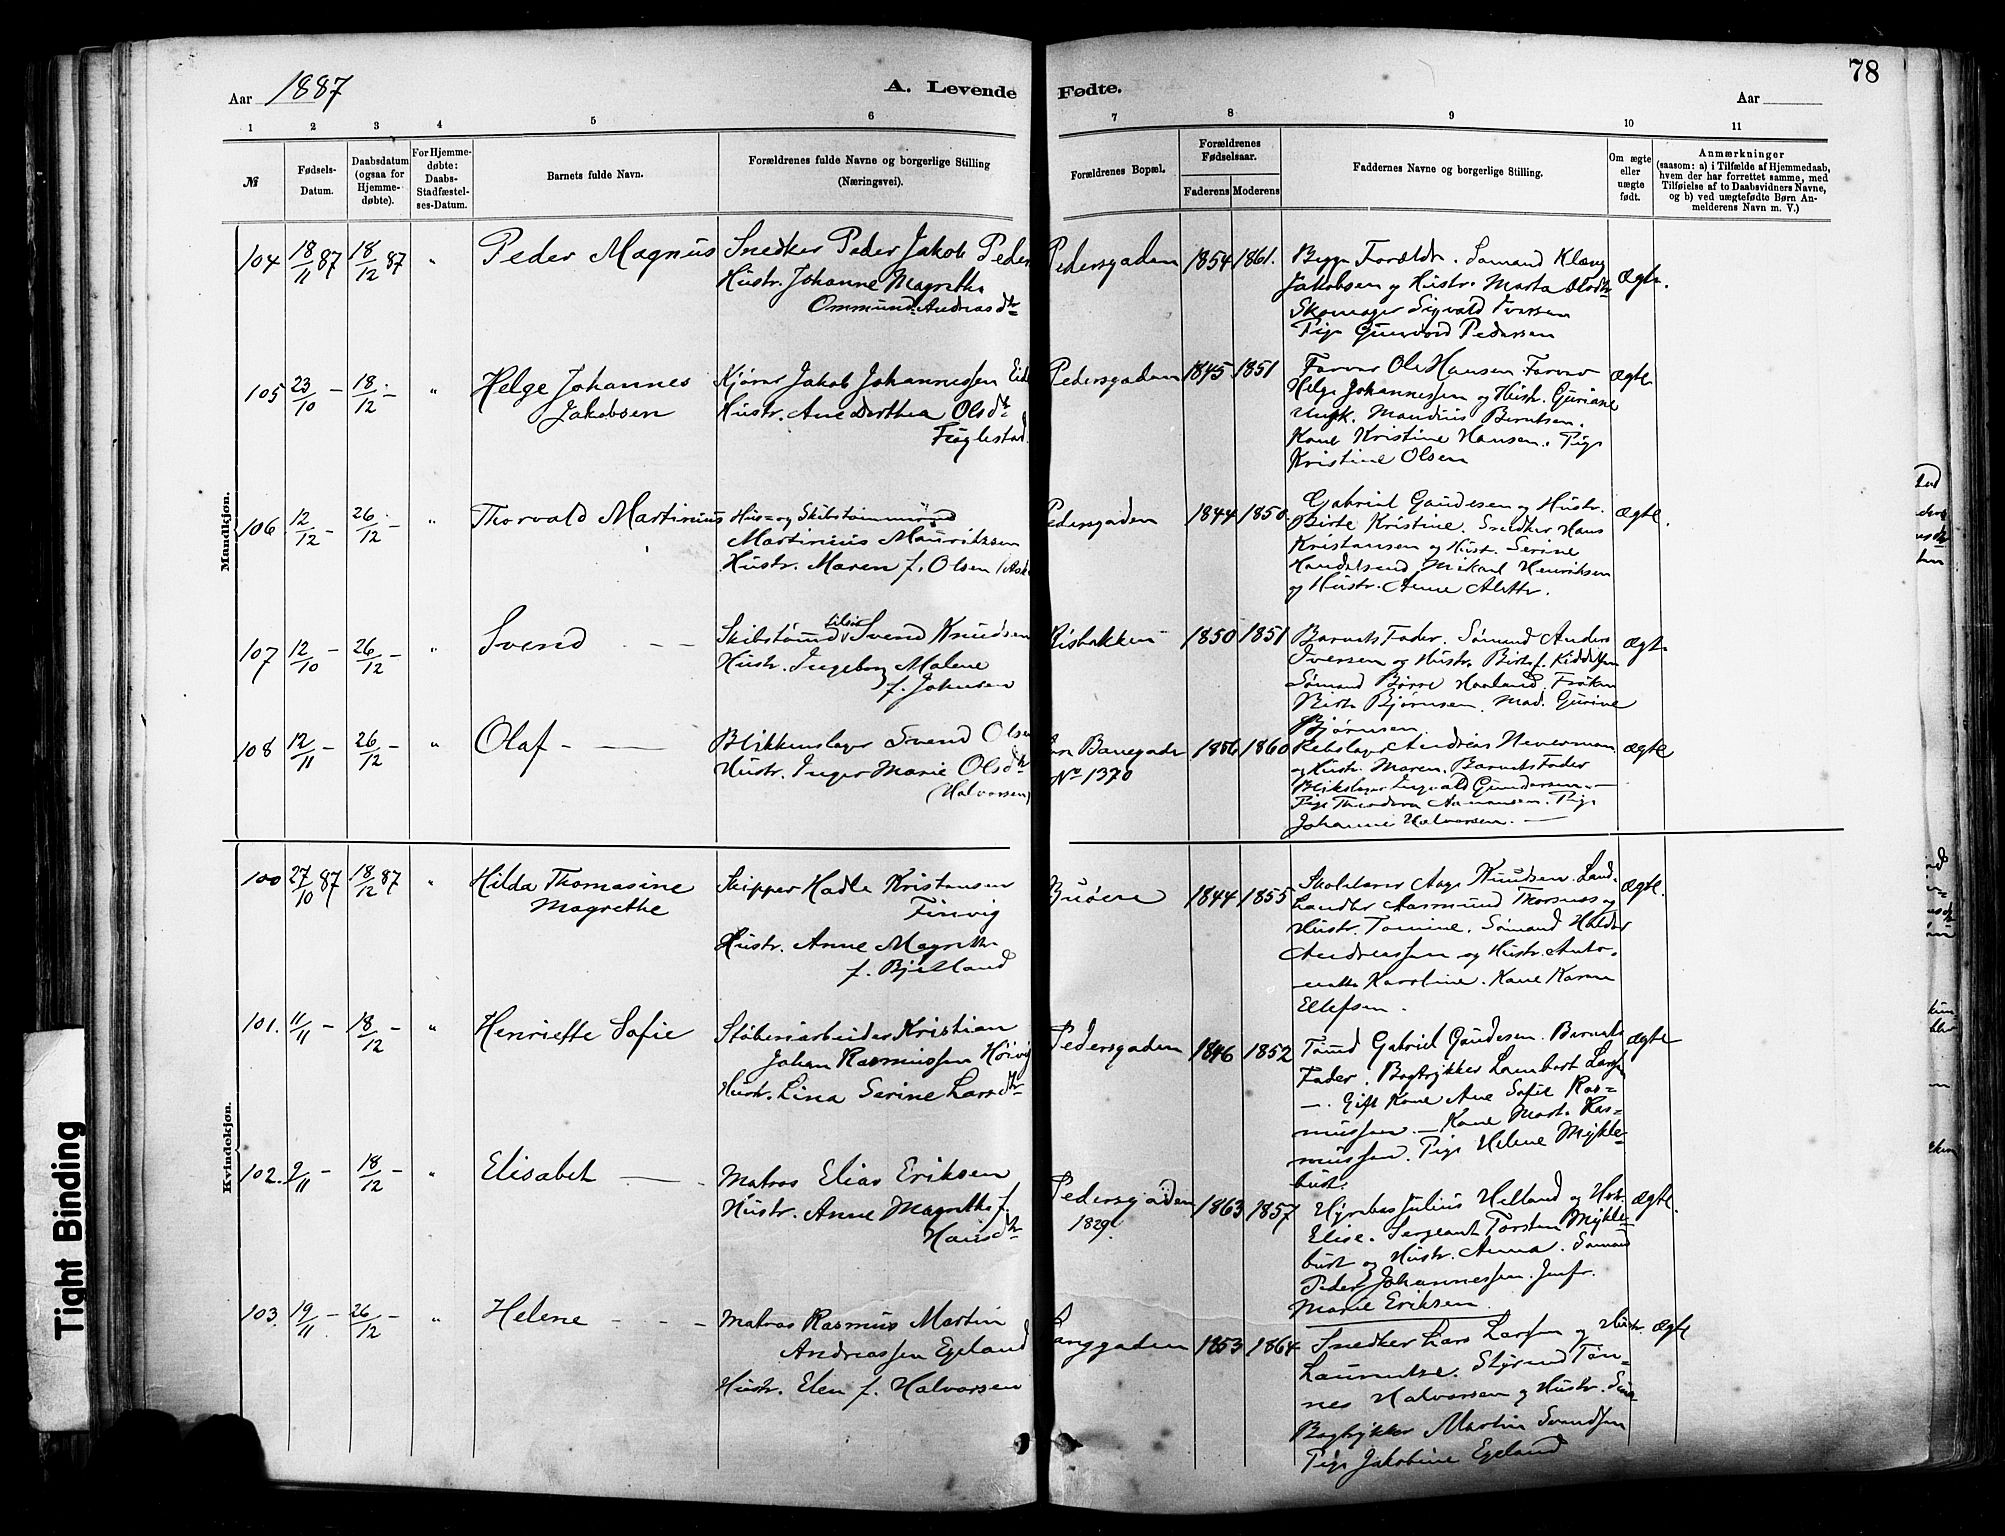 78
Aar 1887
A. Levende Fødte.
Aar
1 2 3 4 5 6 7 8 9 10 11
№
Fødsels-
Datum.
Daabsdatum
(ogsaa for
Hjemme-
døbte).
For Hjemme-
døbte:
Daabs-
Stadfæstel-
ses-Datum.
Barnets fulde Navn.
Forældrenes fulde Navne og borgerlige Stilling
(Næringsvei).
Forældrenes Bopæl.
Forældrenes
Fødselsaar.
Faderens Moderens
Faddernes Navne og borgerlige Stilling.
Om ægte
eller
uægte
født.
Anmærkninger
(saasom: a) i Tilfælde af Hjemmedaab,
hvem der har forrettet samme, med
Tilføielse af to Daabsvidners Navne,
og b) ved uægtefødte Børn An-
melderens Navn m. V.)
Mandkjøn.
104 18/11 87 18/12 87 " Peder Magnus
Snedker Peder Jakob Peder
Hustr. Johanne Magrethe
Ommund. Andreasdtr
Pedersgaden 1854 1861.
Begge Forældr. Sømand
Jakobsen og Hustr. Marta
Skomager Sigvald Iversen
Pige Gunvord Pedersen
Ægte.
105 23/10 - 18/12 - " Helge Johannes
Jakobsen
Kjører Jakob Johannessen Eid
Hustr. Ane Dorthea Olsdtr
Fuglestad
Pedersgaden 1845 1851
Farver Ole Hansen. Farver
Helge Johannessen og Hustr. Guriane
Ungk. Mandius Berntsen.
Kone Kristine Hansen. Pige
Kristine Olsen
Ægte.
106. 12/12 - 26/12 - " Thorvald Martinius
Hus- og Skibstømmermand
Martinius Mauritzsen
Hustr. Maren f. Olsen
Pedersgaden 1844 1850.
Gabriel Gaudesen og Hustr.
Birte Kristine. Snedker Hans
Kristansen og Hust. Serine
Handelsmd Mikael Henriksen
og Hustr. Anne Alette.
Ægte.
107 12/10 - 26/12 - " Svend
Skibstømmd Svend Knudsen
Hustr. Ingeborg Malene
f. Johnsen
Risbakken 1850 1851
Barnets Fader. Sømand Anders
Iversen og Hustr. Birte f.
Sømand Børre Haaland. Frøken
Birte Bjørnsen. Mad. Gurine
Bjørnsen.
Ægte.
108 12/11 - 26/12 - " Olaf
Blikkenslager Svend Olsen
Hustr. Inger Marie Olsdtr
(Halvorsen)
Banegade
No 1370
1856 1860
Rebslager Andreas Neverman
og Hustr. Maren. Barnets Fader
Blikslager Ingvald Gundersen
Pige Theodora. Pige
Johanne Halvorsen.
Ægte
Kvindekjøn.
100 27/10 87 18/12 87 " Hilda Thomasine
Magrethe
Skipper Hadle Kristensen
Finvig
Hustr. Anne Magrethe
f. Bjelland
Buøene 1844 1855
Skolelærer Aage Knudsen. Land-
handler Aasmund Thorsnes og
Hustr. Tomine. Sømand Haldor
Andreassen og Hustr. Anto-
nette Karoline. Kone Karen
Ellefsen.
Ægte.
101. 11/11 - 18/12 - " Henriette Sofie
Støberiarbeider Kristian
Johan Rasmussen Høivig
Hustr. Lina Serine Larsdtr
Pedersgaden 1846 1852
Tømd Gabriel Gaudesen. Barnets
Fader. Bogtrykker Lambert Larsen
Gift Kone Ane Sofie Ras-
mussen. Kone Mart. Ras-
mussen. Pige Helene Mykle-
bust.
Ægte
102. 9/11 - 18/12 - " Elisabet
Matros Elias Eriksen
Hustr. Anne Magrethe f.
Hansdtr
Pedersgaden
1829
1863 1857
Hyrebas Julius Helland og Hust.
Elise. Sergeant Torsten Mykle-
bust og Hustr. Anna. Sømand
Peder Johannessen. Jmfr.
Marie Eriksen
Ægte.
103. 19/11 - 26/12 - " Helene
Matros Rasmus Martin
Andreassen Egeland
Hustr. Elen f. Halvorsen
Langgaden 1853 1864
Snedker Lars Larsen og Hustr.
Lauruntse. Styrmd Tøn-
nes Halvorsen og Hustr.
Bogtrykker Martin Svendsen
Pige Jakobine Egeland
Ægte
Tight Binding